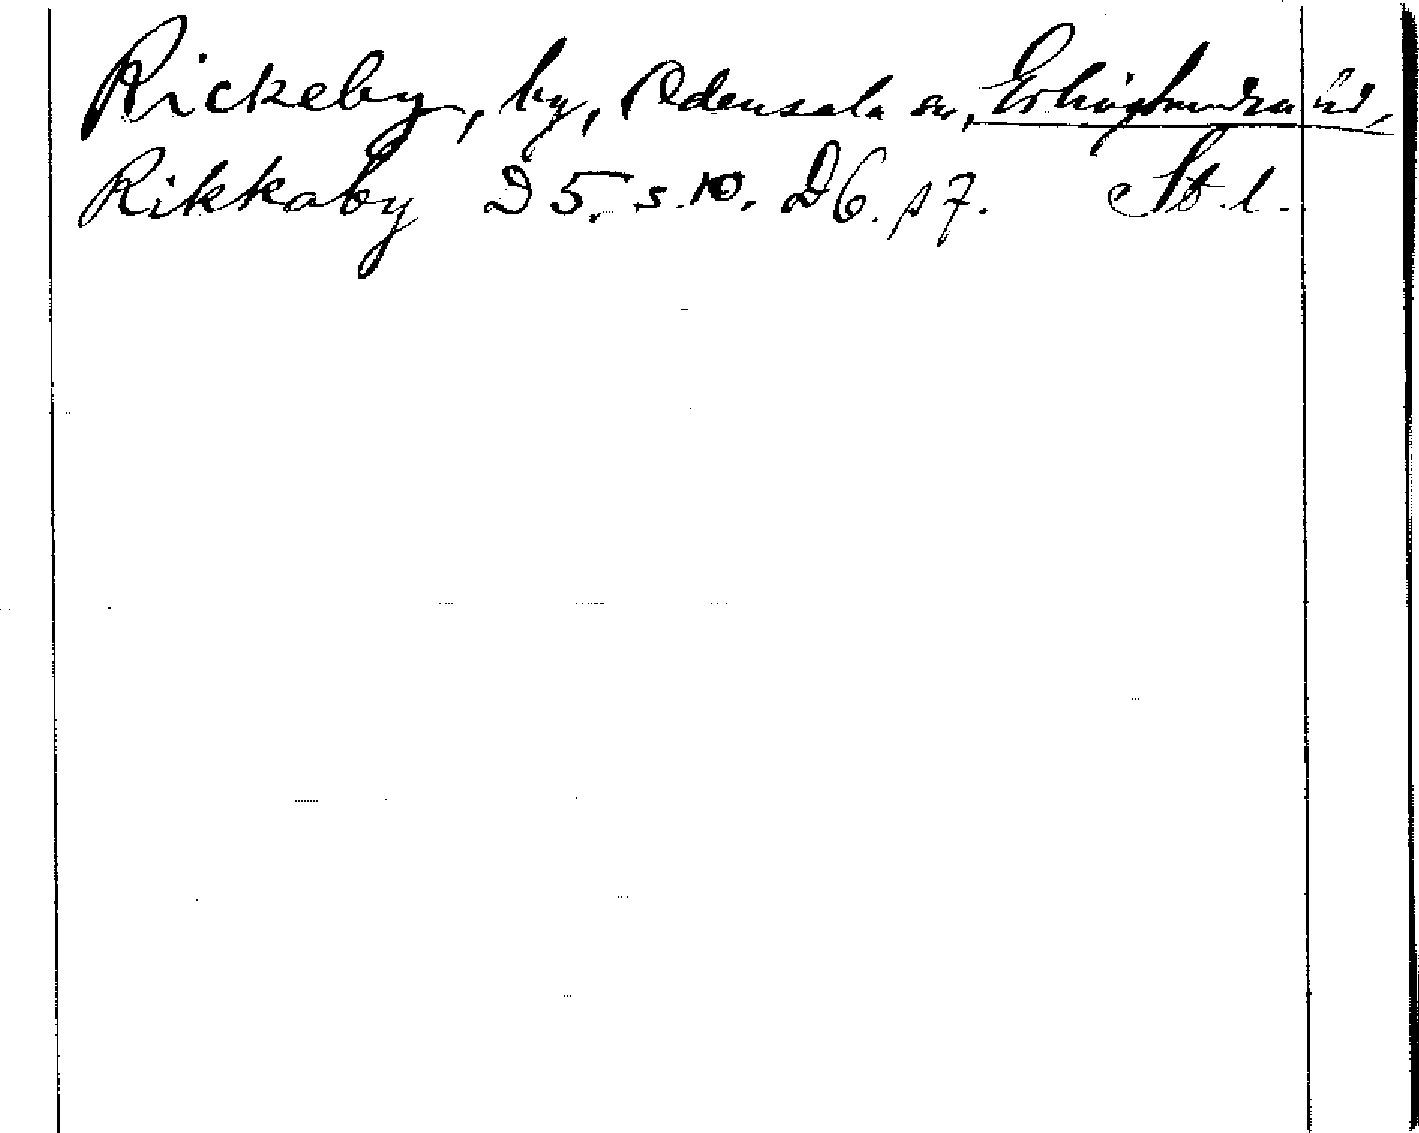 Rickeby, by, Odensala sn, Erlinghundra hd,
Rikkaby D 5. s. 10. D 6. s 7. St. l.